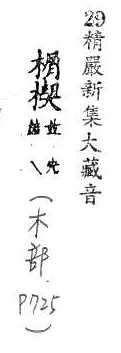 29精嚴新集大藏音
榍楔
並先
結㇏
(木部 P725)